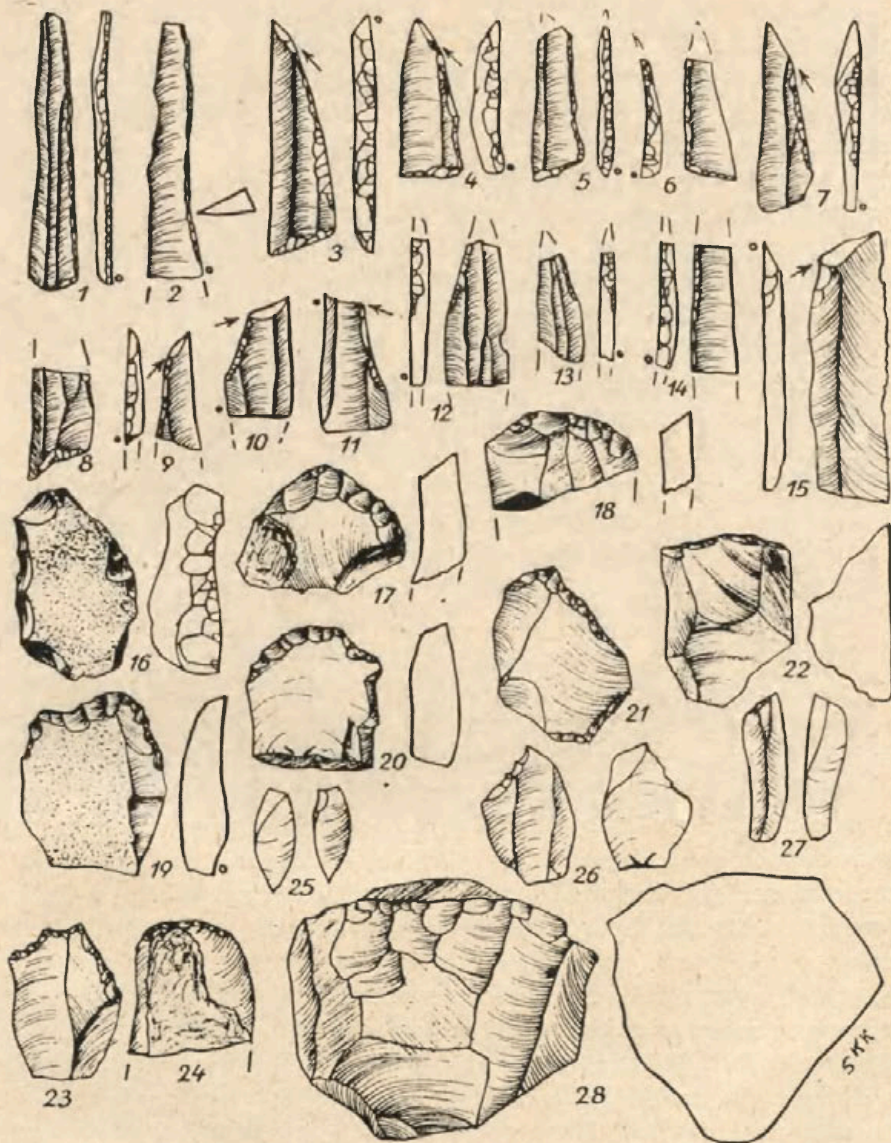 1 2 3 4 5 6 7
8 9 10 11 12 13 14 15
16 17 18
19 20 21 22
25 26 27
23 24 28 SKK